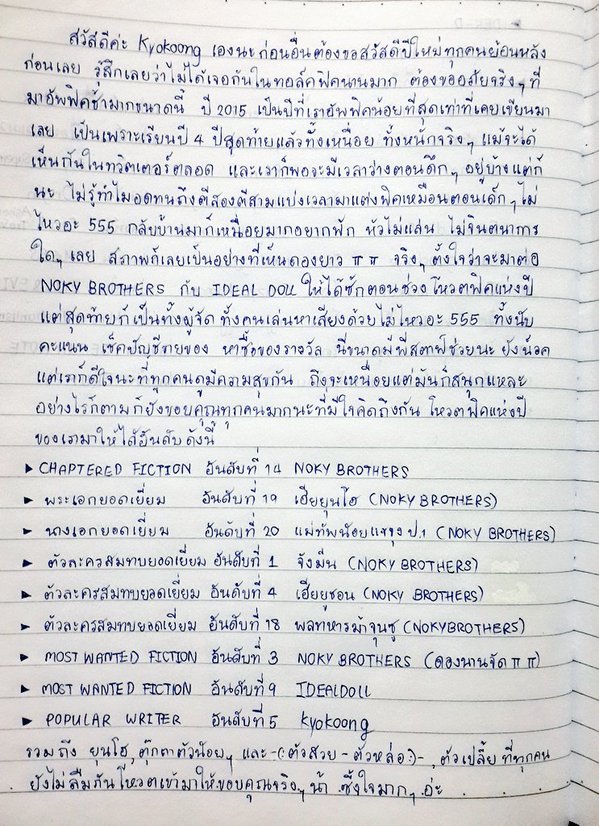 สวัสดีค่ะ Kyokoong เองนะ ก่อนอื่นต้องขอสวัสดีปีใหม่ทุกคนย้อนหลัง
ก่อนเลย รู้สึกเลยว่าไม่ได้เจอกันในทอล์คฟิคนานมาก ต้องขออภัยจริงๆ ที่
มาอัพฟิคช้ามากขนาดนี้ ปี 2015 เป็นปีที่เราอัพฟิคน้อยที่สุดเท่าที่เคยเขียนมา
เลย เป็นเพราะเรียนปี 4 ปีสุดท้ายแล้วทั้งเหนื่อย ทั้งหนักจริงๆ แม้จะได้
เห็นกันในทวิตเตอร์ตลอด และเราก็พอจะมีเวลาว่างตอนดึกๆ อยู่บ้าง แต่ก็
นะ ไม่รู้ทำไมอดทนถึงตีสองตีสามแบ่งเวลามาแต่งฟิคเหมือนตอนเด็กๆ ไม่
ไหวอะ 555 กลับบ้านมาก็เหนื่อยมากอยากพัก หัวไม่แล่น ไม่จินตนาการ
ใดๆ เลย สภาพก็เลยเป็นอย่างที่เห็นดองยาว ㅠㅠ จริงๆ ตั้งใจว่าจะมาต่อ
NOKY BROTHERS กับ IDEAL DOLL ให้ได้ซักตอนช่วงโหวตฟิคแห่งปี
แต่สุดท้ายก็เป็นทั้งผู้จัด ทั้งคนเล่นหาเสียงด้วยไม่ไหวอะ 555 ทั้งนับ
คะแนน เช็คบัญชีขายของ หาซื้อของรางวัล นี่ขนาดมีพี่สตาฟช่วยนะ ยังน็อค
แต่เราก็ดีใจนะที่ทุกคนดูมีความสุขกัน ถึงจะเหนื่อยแต่มันก็สนุกแหละ
อย่างไรก็ตามก็ยังขอบคุณทุกคนมากนะที่มีใจคิดถึงกัน โหวตฟิคแห่งปี
ของเรามาให้ได้อันดับดังนี้
▶ CHAPTERED FICTION อันดับที่ 14 NOKY BROTHERS
▶ พระเอกยอดเยี่ยม อันดับที่ 19 เฮียยุนโฮ (NOKY BROTHERS)
▶ นางเอกยอดเยี่ยม อันดับที่ 20 แม่ทัพน้อยแจจุง ป.1 (NOKY BROTHERS)
▶ ตัวละครสมทบยอดเยี่ยม อันดับที่ 1 จังมีน (NOKY BROTHERS)
▶ ตัวละครสมทบยอดเยี่ยม อันดับที่ 4 เฮียยูชอน (NOKY BROTHERS)
▶ ตัวละครสมทบยอดเยี่ยม อันดับที่ 18 พลทหารม้าจุนซู (NOKYBROTHERS)
▶ MOST WANTED FICTION อันดับที่ 3 NOKY BROTHERS (ดองนานจัด ㅠㅠ)
▶ MOST WANTED FICTION อันดับที่ 9 IDEALDOLL
▶ POPULAR WRITER อันดับที่ 5 Kyokoong
รวมถึง ยุนโฮ, ตุ๊กตาตัวน้อยๆ และ -(:ตัวสวย - ตัวหล่อ:)-, ตัวเปลี้ย ที่ทุกคน
ยังไม่ลืมกันโหวตเข้ามาให้ขอบคุณจริงๆ น้า ซึ้งใจมากๆ อ่ะ